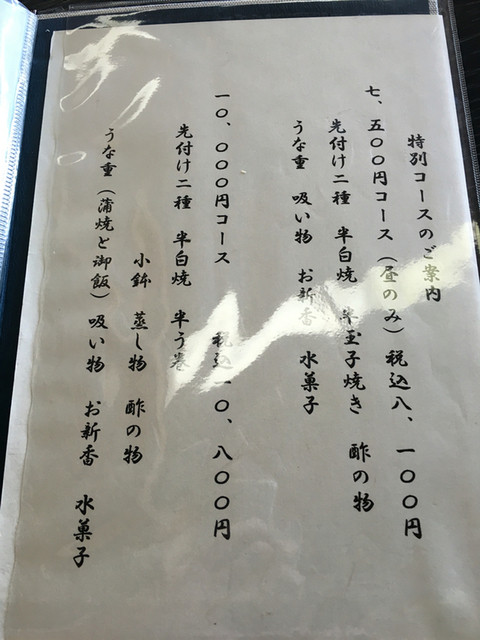 特別コースのご案内
七、五〇〇円コース（昼のみ）税込八、一〇〇円
先付け二種 半白焼 半玉子焼き 酢の物
うな重 吸い物 お新香 水菓子
一〇、〇〇〇円コース 税込一〇、八〇〇円
先付け二種 半白焼 半う巻
小鉢 蒸し物 酢の物
うな重（蒲焼と御飯）吸い物 お新香 水菓子